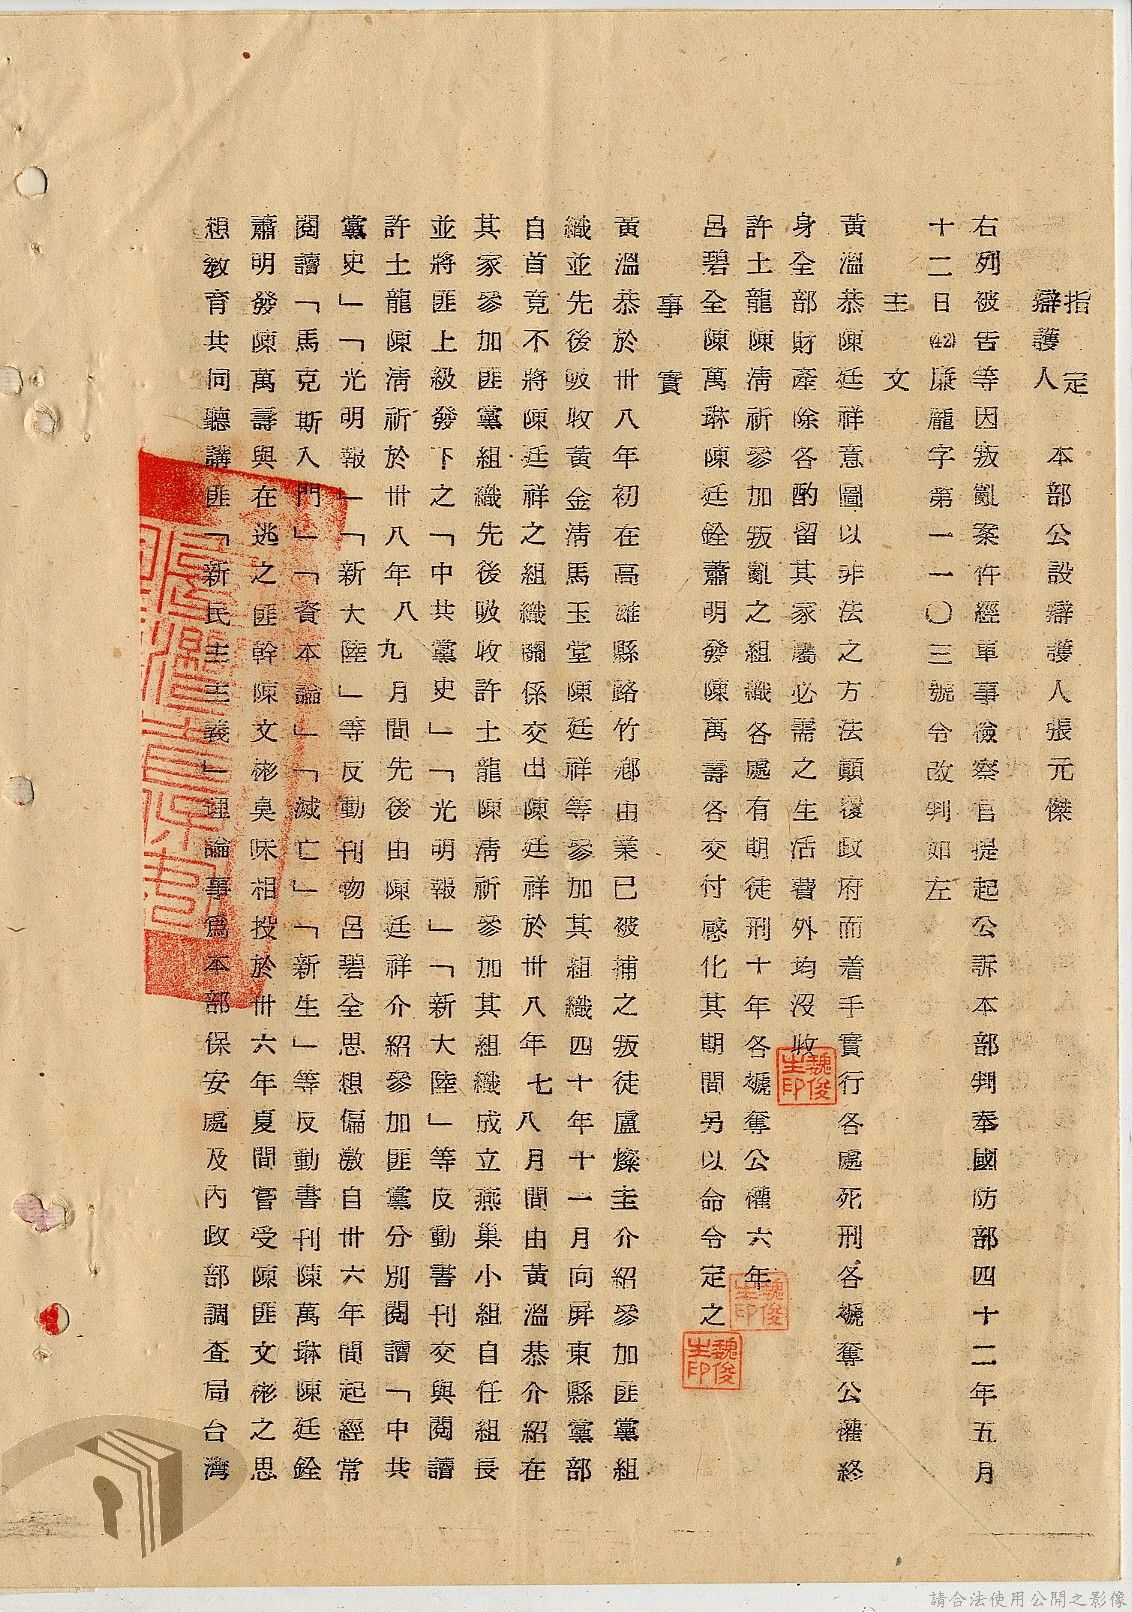 指定
辯護人　本部公設辯護人張元傑
右列被告等因叛亂案件經軍事檢察官提起公訴本部判奉國防部四十二年五月
十二日(42)廉龍字第一一〇三號令改判如左
主文
黃溫恭陳廷祥意圖以非法之方法顛覆政府而着手實行各處死刑各褫奪公權終
身全部財產除各酌留其家屬必需之生活費外均沒收
許土龍陳清祈參加叛亂之組織各處有期徒刑十年各褫奪公權六年
呂碧全陳萬琳陳廷銓蕭明發陳萬壽各交付感化其期間另以命令定之
事實
黃溫恭於卅八年初在高雄縣路竹鄉由業已被捕之叛徒盧燦圭介紹參加匪黨組
織並先後吸收黃金清馬玉堂陳廷祥等參加其組織四十年十一月向屏東縣黨部
自首竟不將陳廷祥之組織關係交出陳廷祥於卅八年七八月間由黃溫恭介紹在
其家參加匪黨組織先後吸收許土龍陳清祈參加其組織成立燕巢小組自任組長
並將匪上級發下之「中共黨史」「光明報」「新大陸」等反動書刊交與閱讀
許土龍陳清祈於卅八年八九月間先後由陳廷祥介紹參加匪黨分別閱讀「中共
黨史」「光明報」「新大陸」等反動刊物呂碧全思想偏激自卅六年間起經常
閱讀「馬克斯入門」「資本論」「滅亡」「新生」等反動書刊陳萬琳陳廷銓
蕭明發陳萬壽與在逃之匪幹陳文彬臭味相投於卅六年夏間嘗受陳匪文彬之思
想教育共同聽講匪「新民主主義」理論事爲本部保安處及內政部調查局台灣
魏俊生印
魏俊生印
魏俊生印
請合法使用公開之影像